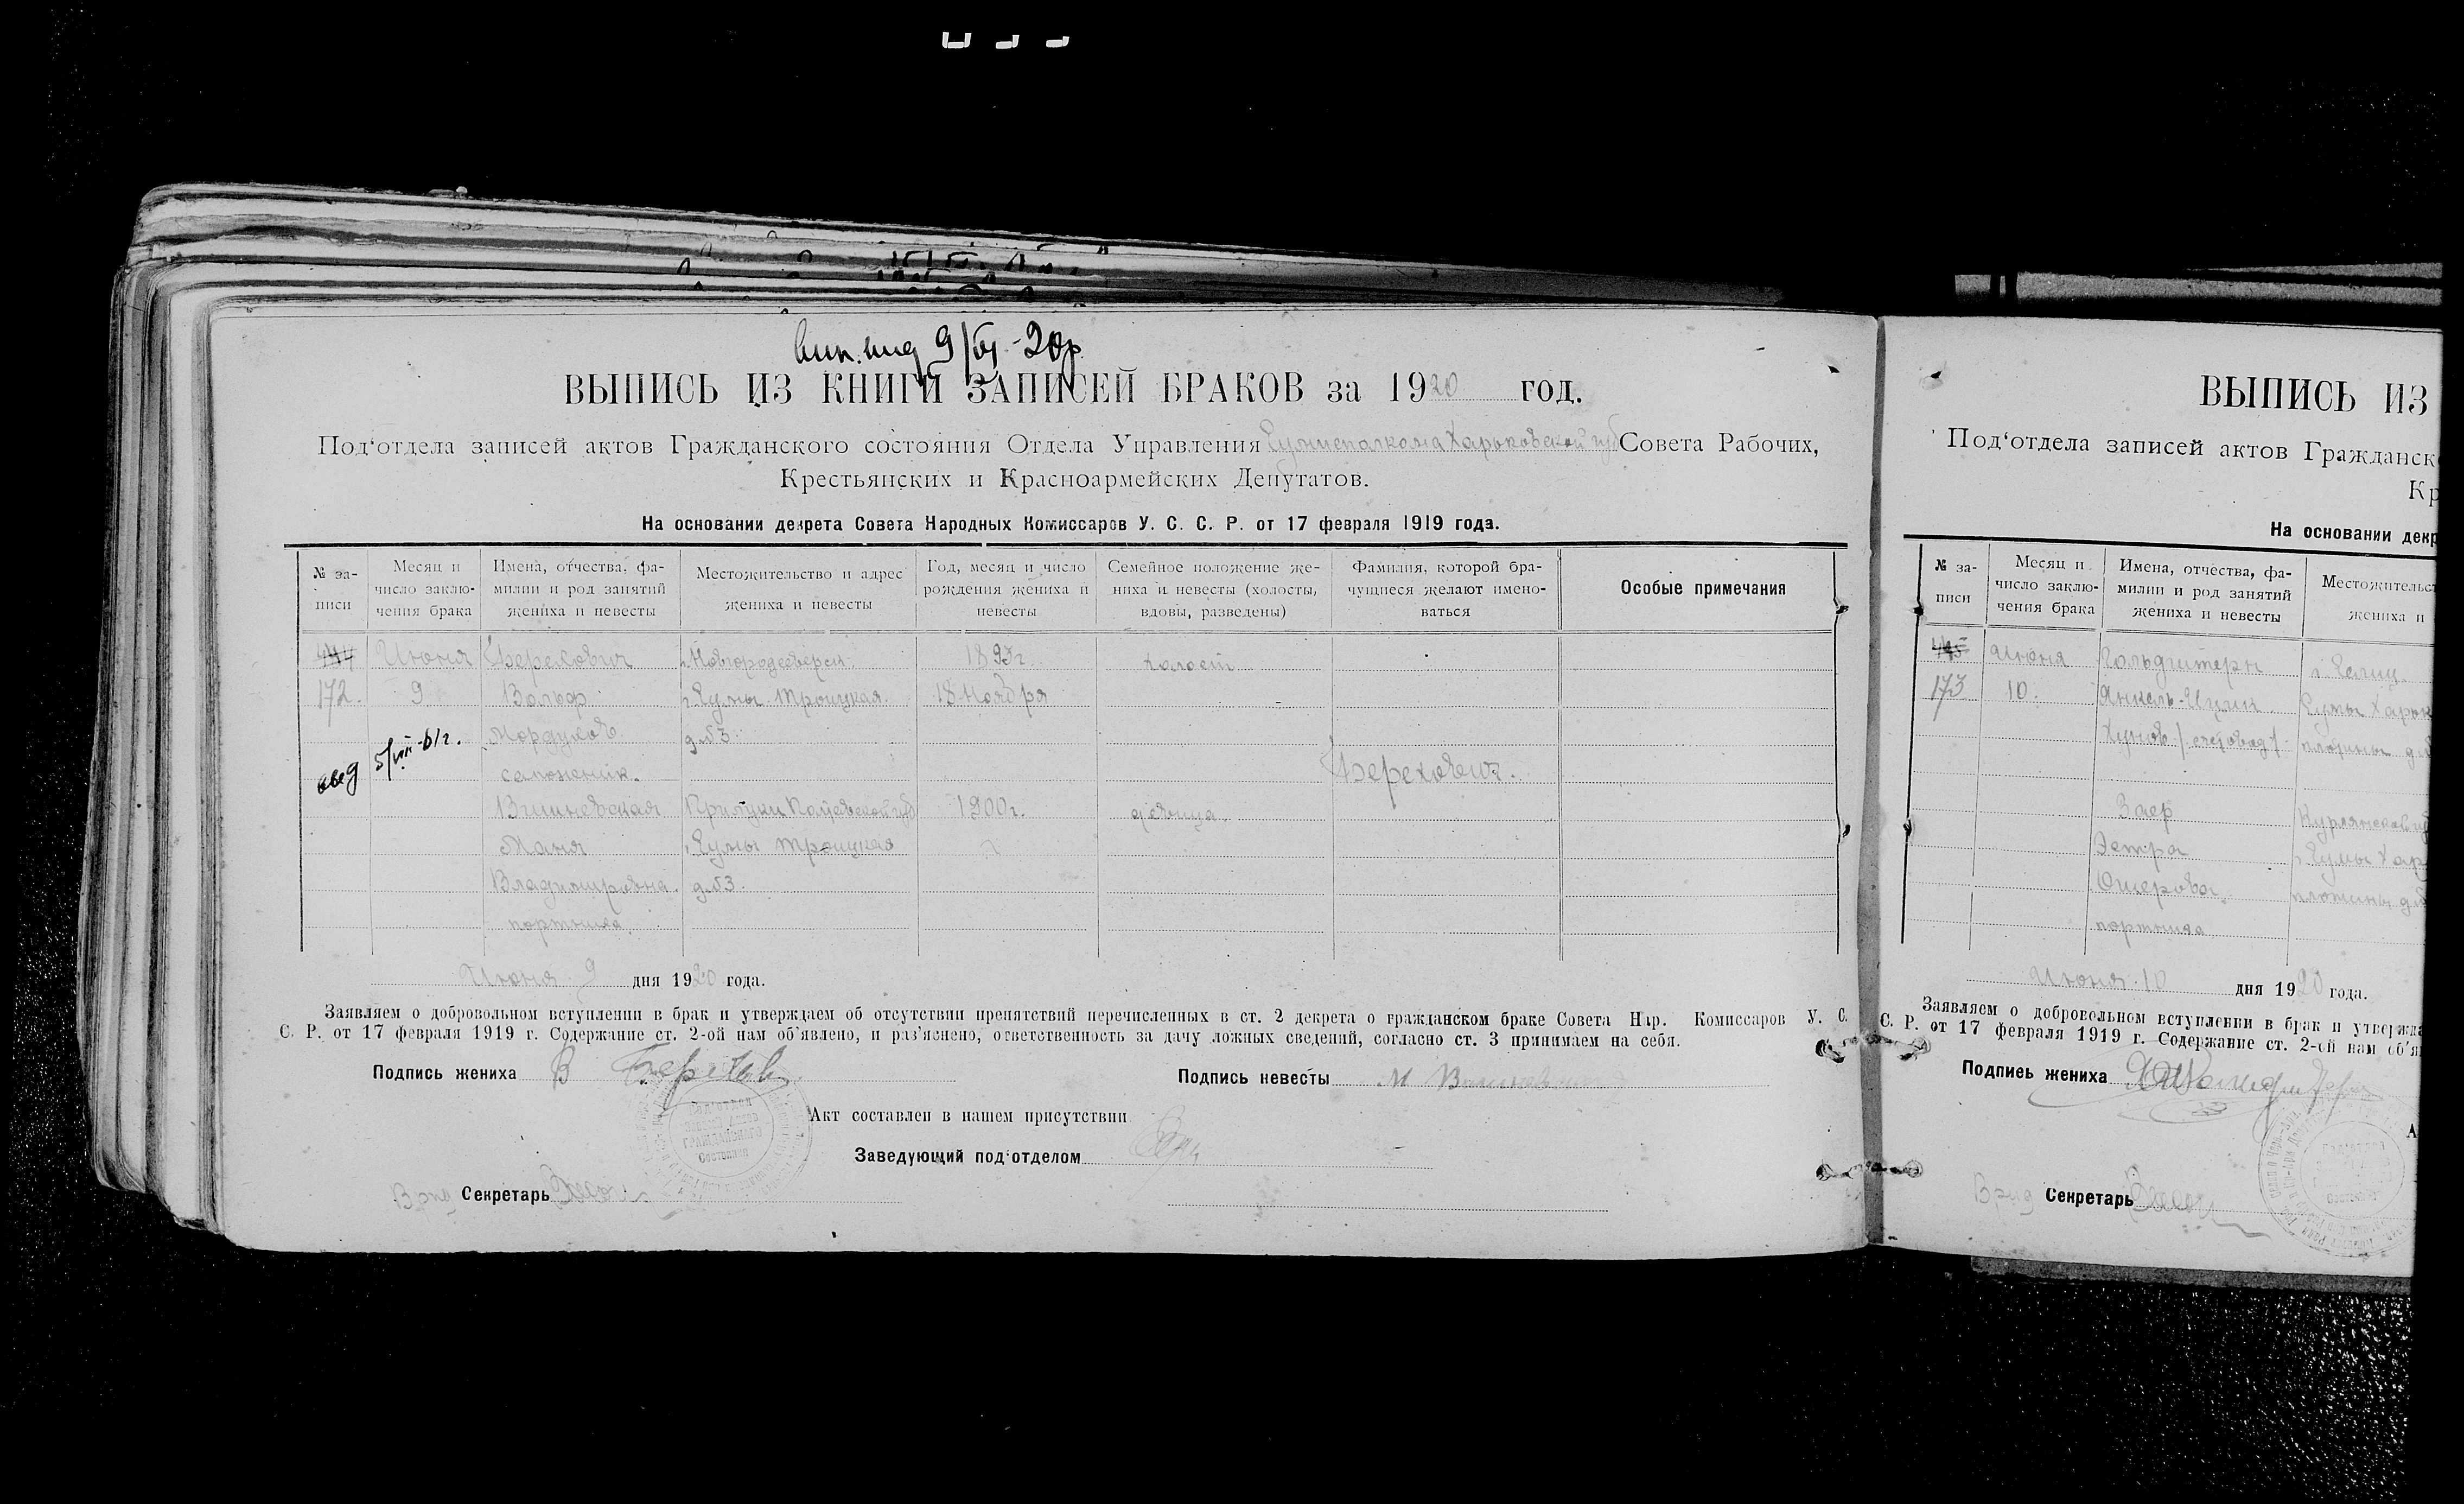 9/VI-20р.
ВЫПИСЬ ИЗ КНИГИ ЗАПИСЕЙ БРАКОВ за 1920 год.
Под‘отдела записей актов Гражданского состояния Отдела Управления Сумисполкома Харьковской губ Совета Рабочих,
Крестьянских и Красноармейских Депутатов.
На основании декрета Совета Народных Комиссаров У. С. С. Р. от 17 февраля 1919 года.
№ за-
писи
Месяц и
число заклю-
чения брака
Имена, отчества, фа-
милии и род занятий
жениха и невесты
Местожительство и адрес
жениха и невесты
Год, месяц и число
рождения жениха и
невесты
Семейное положение же-
ниха и невесты (холосты,
вдовы, разведены)
Фамилия, которой бра-
чущиеся желают имено-
ваться
Особые примечания
444 Июня Берехович г. Новгородсеверск. 1893г. холост
172. 9 Вольф г. Сумы Троицкая. 18 Ноября
5/VIII-51г. Мордухов д. №3.
сапожник. Берехович.
Вишневская Прилуки Полтавской губ 1900г. девица.
Маня г. Сумы Троицкая
Владимировна. д. №3.
портниха.
Июня 9 дня 1920 года.
Заявляем о добровольном вступлении в брак и утверждаем об отсутствии препятствий перечисленных в ст. 2 декрета о гражданском браке Совета Нар. Комиссаров У. С.
С. Р. от 17 февраля 1919 г. Содержание ст. 2-ой нам об‘явлено, и раз‘яснено, ответственность за дачу ложных сведений, согласно ст. 3 принимаем на себя.
Подпись жениха В
Подпись невесты М Вишневская
Акт составлен в нашем присутствии
Заведующий под‘отделом
Врид Секретарь
ВЫПИСЬ ИЗ
Под‘отдела записей актов Гражданск
Кр
На основании декр
№ за-
писи
Месяц и
число заклю-
чения брака
Имена, отчества, фа-
милии и род занятий
жениха и невесты
Местожительст
жениха и
445 Июня Гольдштерн
173 10. Янкель-Ицик Сумы Харьк
/счетовод/
Заер Курлянской
Эстра г. Сумы Хар
Ошерова.
портниха
Июня 10 дня 1920 года.
Заявляем о добровольном вступлении в брак и утвержда
С. Р. от 17 февраля 1919 г. Содержание ст. 2-ой нам об‘я
Подпись жениха
А
Врид Секретарь